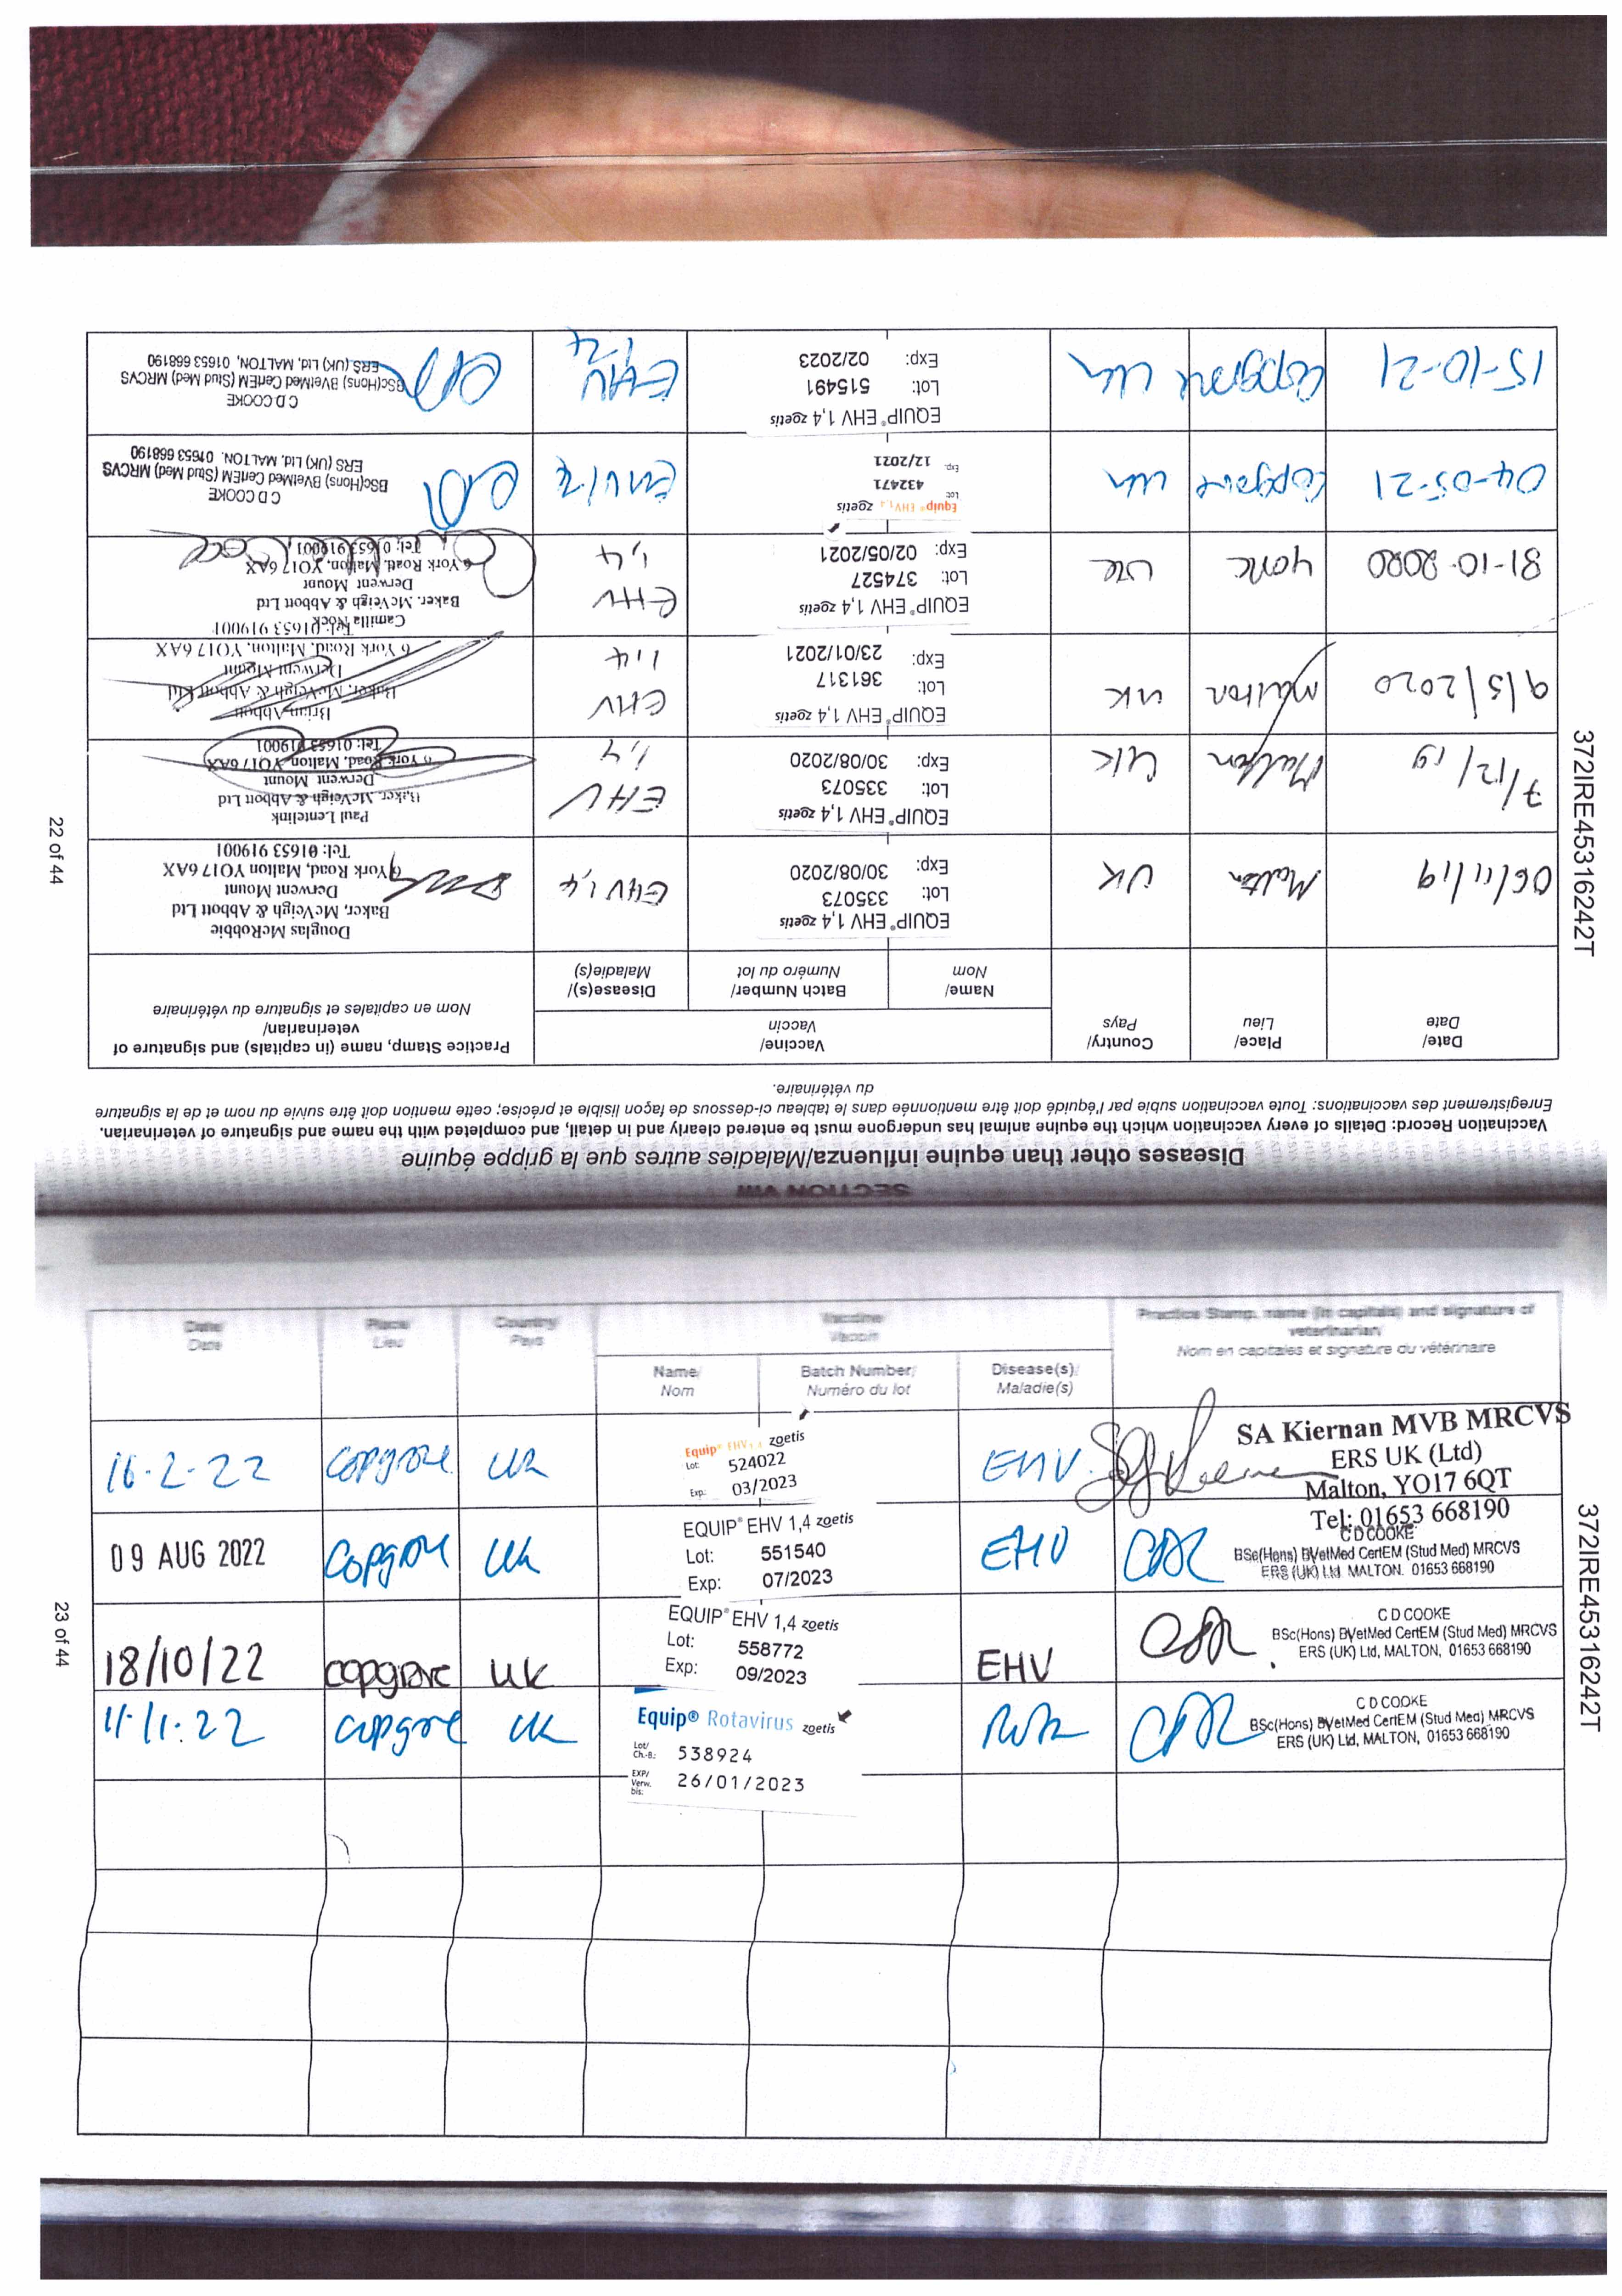 SECTION VIII
Diseases other than equine influenza/Maladies autres que la grippe équine
Vaccination Record: Details of every vaccination which the equine animal has undergone must be entered clearly and in detail, and completed with the name and signature of veterinarian.
Enregistrement des vaccinations: Toute vaccination subie par l'équidé doit être mentionnée dans le tableau ci-dessous de façon lisible et précise; cette mention doit être suivie du nom et de la signature
du vétérinaire.
Date/
Date
Place/
Lieu
Country/
Pays
Vaccine/
Vaccin
Name/
Nom
Batch Number/
Numéro du lot
Disease(s)/
Maladie(s)
Practice Stamp, name (in capitals) and signature of
veterinarian/
Nom en capitales et signature du vétérinaire
06/11/19
Malton
UK
EQUIP® EHV 1,4 zoetis
Lot: 335073
Exp: 30/08/2020
EHV 1,4
Douglas McRobbie
Baker, McVeigh & Abbott Ltd
Derwent Mount
6 York Road, Malton YO17 6AX
Tel: 01653 919001
7/12/19
Malton
UK
EQUIP® EHV 1,4 zoetis
Lot: 335073
Exp: 30/08/2020
EHV
1,4
Paul Lentelink
Baker, McVeigh & Abbott Ltd
Derwent Mount
6 York Road, Malton YO17 6AX
Tel: 01653 919001
9/5/2020
Malton
UK
EQUIP® EHV 1,4 zoetis
Lot: 361317
Exp: 23/01/2021
EHV
1,4
Brian Abbott
Baker, McVeigh & Abbott Ltd
Derwent Mount
6 York Road, Malton, YO17 6AX
Tel: 01653 919001
31-10-2020
YORK
UK
EQUIP® EHV 1,4 zoetis
Lot: 374527
Exp: 02/05/2021
EHV
1,4
Camilla Nock
Baker, McVeigh & Abbott Ltd
Derwent Mount
6 York Road, Malton, YO17 6AX
Tel: 01653 919001
04-05-21
Copgrove
UK
Equip® EHV 1,4 zoetis
Lot 432471
Exp. 12/2021
C D COOKE
BSc(Hons) BVetMed CertEM (Stud Med) MRCVS
ERS (UK) Ltd, MALTON. 01653 668190
15-10-21
Copgrove
UK
EQUIP® EHV 1,4 zoetis
Lot: 515491
Exp: 02/2023
EHV
C D COOKE
BSc(Hons) BVetMed CertEM (Stud Med) MRCVS
ERS (UK) Ltd, MALTON, 01653 668190
22 of 44
372IRE45316242T
Date/
Date
Place/
Lieu
Country/
Pays
Vaccine/
Vaccin
Name/
Nom
Batch Number/
Numéro du lot
Disease(s)/
Maladie(s)
Practice Stamp, name (in capitals) and signature of
veterinarian/
Nom en capitales et signature du vétérinaire
16-2-22
Copgrove
UK
Equip® EHV 1,4 zoetis
Lot: 524022
Exp: 03/2023
EHV
SA Kiernan MVB MRCVS
ERS UK (Ltd)
Malton, YO17 6QT
Tel: 01653 668190
09 AUG 2022
Copgrove
UK
EQUIP® EHV 1,4 zoetis
Lot: 551540
Exp: 07/2023
EHV
C D COOKE
BSc(Hons) BVetMed CertEM (Stud Med) MRCVS
ERS (UK) Ltd MALTON. 01653 668190
18/10/22
copgrove
UK
EQUIP® EHV 1,4 zoetis
Lot: 558772
Exp: 09/2023
EHV
C D COOKE
BSc(Hons) BVetMed CertEM (Stud Med) MRCVS
ERS (UK) Ltd, MALTON, 01653 668190
11·11·22
Copgrove
UK
Equip® Rotavirus zoetis
Lot/
Ch.-B.: 538924
EXP/
Verw.
bis: 26/01/2023
Rota
C D COOKE
BSc(Hons) BVetMed CertEM (Stud Med) MRCVS
ERS (UK) Ltd, MALTON, 01653 668190
23 of 44
372IRE45316242T